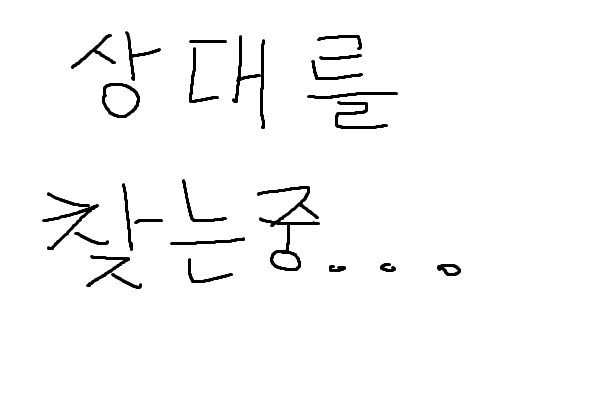 상대를
찾는중...